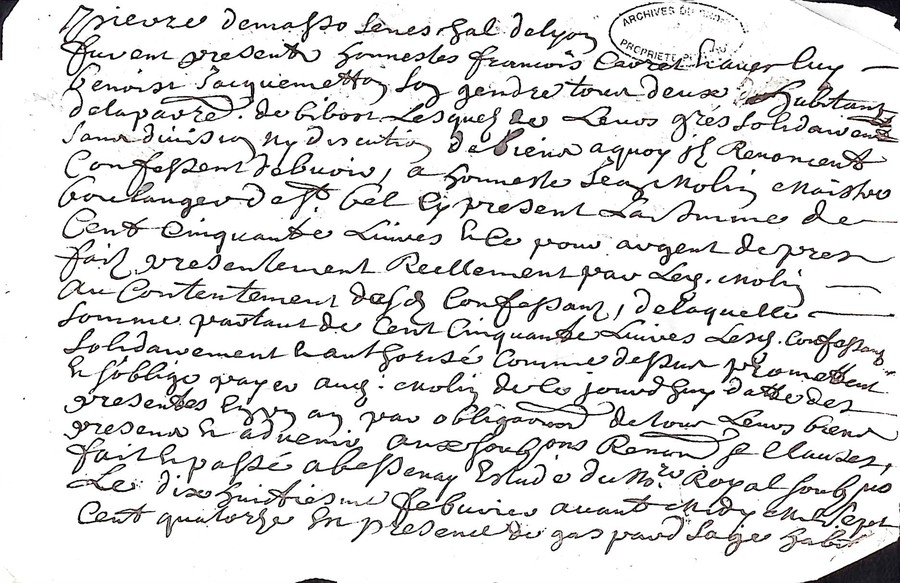 pierre demasso Seneschal delyon
ARCHIVES DU
PROPRIETE
furent presents honnestes francois hauer luy
benoist Jacquemetton Son gendre tous deux habitans
delaparre. de bibost Lesquels de Leurs grés solidairement
sans division ny discution de biens a quoy ils Renoncent
Confessent debvoir, a honneste Jean Molin Maistre
boulanger de st. bel Cy present La somme de
Cent Cinquante Livres & ce pour argent de prest
fait presentement Reellement par Led. Molin
au Contentement desd Confessants, delaquelle
somme partant de Cent Cinquante Livres Lesd. confessants
solidairement & authorisé Comme dessus promettent
& soblige payer aud. Molin de ce jourdhuy datte des
presentes En un an par obligation de tous Leurs biens
presens & advenir aux soubzons Renon & Clauses,
fait & passé a bessenay Estude du No.re Royal soubz.né
Le dix huictiesme febvrier avant Midy Mil Sept
Cent quatorze En presence de gaspard Sage habit